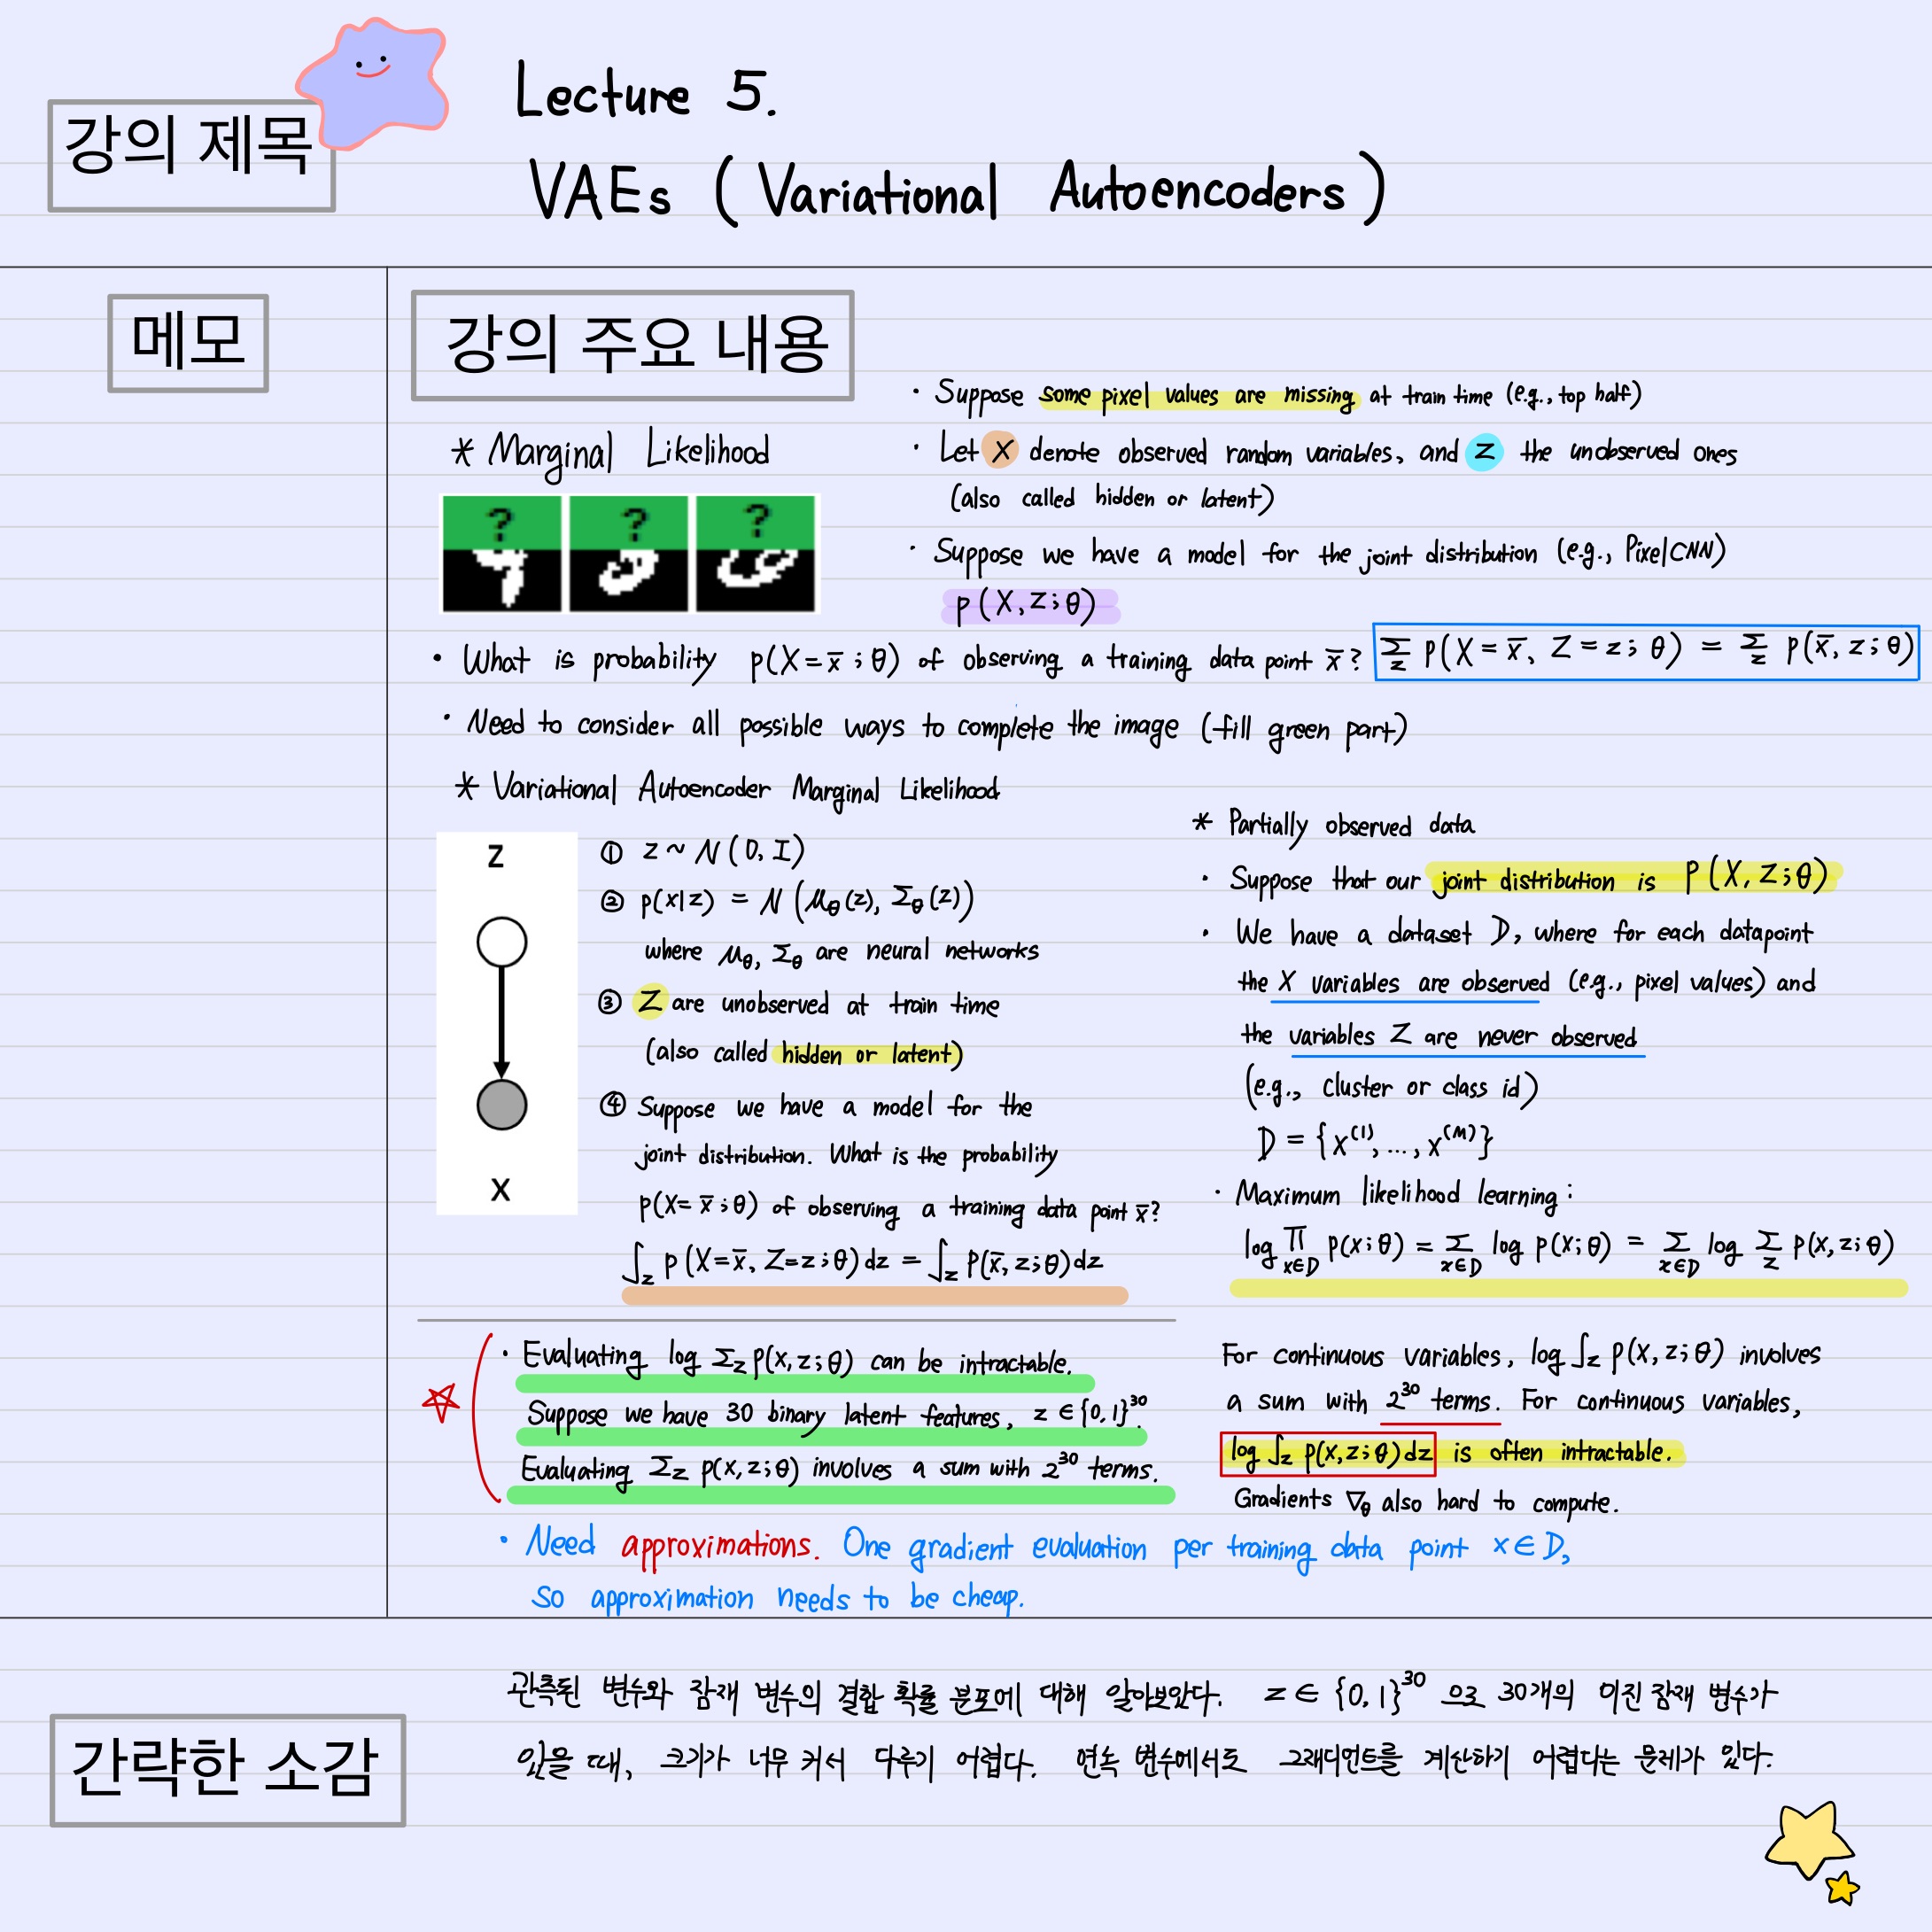 강의 제목
Lecture 5.
VAEs (Variational Autoencoders)
메모
강의 주요 내용
* Marginal Likelihood
? ? ?
· Suppose some pixel values are missing at train time (e.g., top half)
· Let X denote observed random variables, and Z the unobserved ones
(also called hidden or latent)
· Suppose we have a model for the joint distribution (e.g., PixelCNN)
p(X,Z;θ)
· What is probability p(X=x̄;θ) of observing a training data point x̄? Σ_z p(X=x̄, Z=z; θ) = Σ_z p(x̄, z; θ)
· Need to consider all possible ways to complete the image (fill green part)
* Variational Autoencoder Marginal Likelihood
Z
X
① z ~ N(0, I)
② p(x|z) = N(μ_θ(z), Σ_θ(z))
where μ_θ, Σ_θ are neural networks
③ Z are unobserved at train time
(also called hidden or latent)
④ Suppose we have a model for the
joint distribution. What is the probability
p(X=x̄;θ) of observing a training data point x̄?
∫_z p(X=x̄, Z=z;θ)dz = ∫_z p(x̄, z;θ)dz
* Partially observed data
· Suppose that our joint distribution is P(X,Z;θ)
· We have a dataset D, where for each datapoint
the X variables are observed (e.g., pixel values) and
the variables Z are never observed
(e.g., cluster or class id)
D = {x^(1), ..., x^(M)}
· Maximum likelihood learning:
log Π_{x∈D} p(x;θ) = Σ_{x∈D} log p(x;θ) = Σ_{x∈D} log Σ_z p(x, z;θ)
· Evaluating log Σ_z p(x, z;θ) can be intractable.
Suppose we have 30 binary latent features, z ∈ {0,1}^30.
Evaluating Σ_z p(x, z;θ) involves a sum with 2^30 terms.
For continuous variables, log ∫_z p(x, z;θ) involves
a sum with 2^30 terms. For continuous variables,
log ∫_z p(x, z;θ)dz is often intractable.
Gradients ∇_θ also hard to compute.
· Need approximations. One gradient evaluation per training data point x∈D,
So approximation needs to be cheap.
간략한 소감
관측된 변수와 잠재 변수의 결합 확률 분포에 대해 알아보았다. z ∈ {0,1}^30 으로 30개의 이진 잠재 변수가
있을 때, 크기가 너무 커서 다루기 어렵다. 연속 변수에서도 그래디언트를 계산하기 어렵다는 문제가 있다.